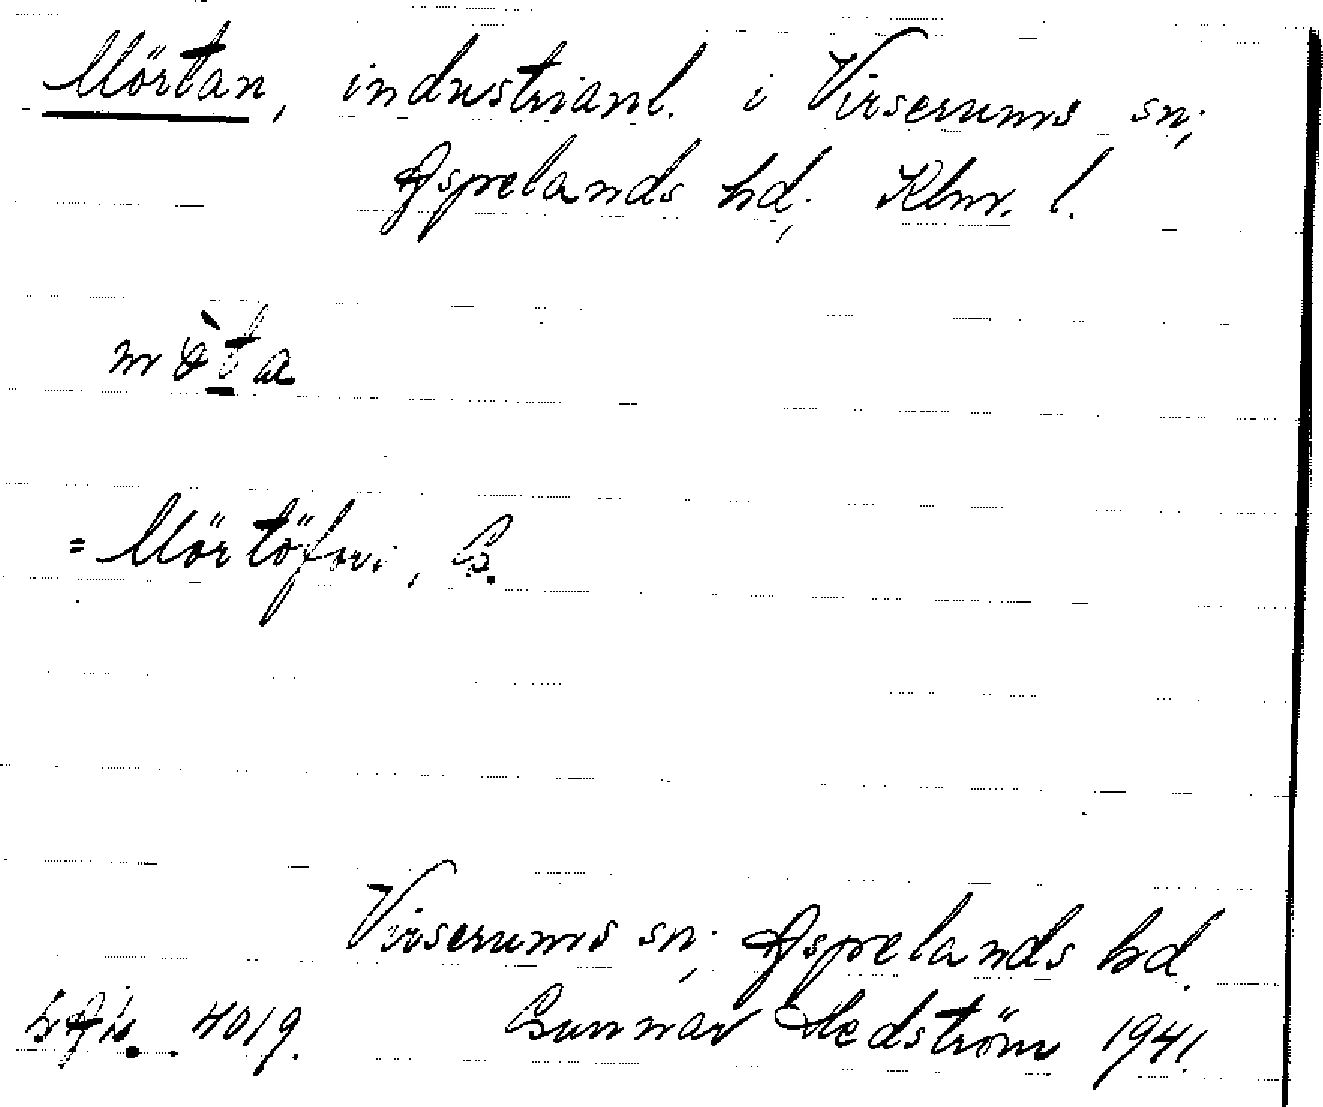 Mörtan, industrianl. i Virserums sn;
Aspelands hd; Klmr. l.
mø̀ta
= Mörtöfors, G.
Virserums sn; Aspelands hd.
4019. Gunnar Hedström 1941.